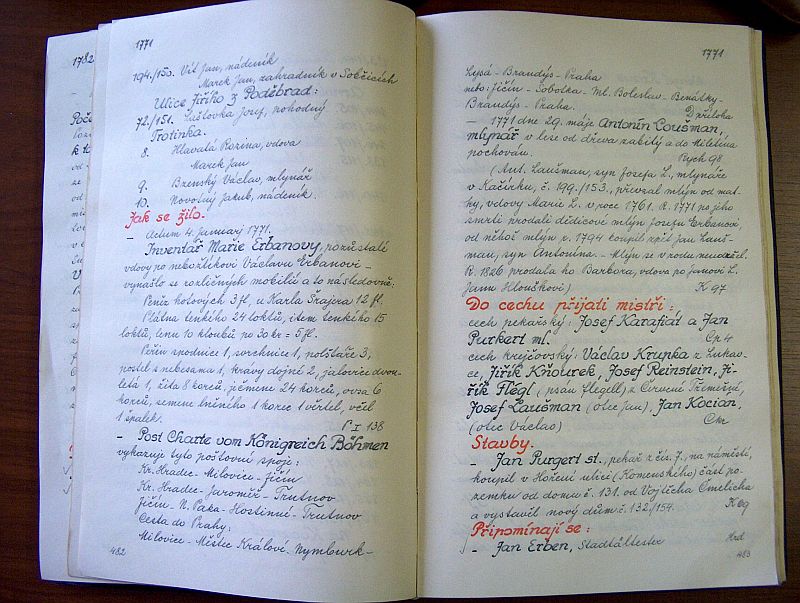 1782
1771
194./150. Vít Jan, nádeník
Marek Jan, zahradník v Sobčicích
Ulice Jiřího z Poděbrad:
72./151. Laštovka Josef, pohodný
Trotinka.
8. Hlavatá Rozina, vdova
Marek Jan
9. Brenský Václav, mlynář
10. Novotný Jakub, nádeník.
Jak se žilo.
- Actum 4. januarj 1771.
Inventář Marie Erbanovy, pozůstalé
vdovy po nebožtíkovi Václavu Erbanovi -
vynašlo se rozličných mobilií a to následovně:
Peněz hotových 3 fl, u Karla Šrajera 12 fl.
Plátna tenkého 24 loktů, item tenkého 15
loktů, lenu 10 kloubů po 30 kr = 5 fl.
Peřin spodnice 1, svrchnice 1, polštáře 3,
postel z nebesama 1, krávy dojné 2, jalovice dvou-
letá 1, žita 8 korců, ječmene 24 korců, ovsa 6
korců, semene lněného 1 korec 1 věrtel, včel
1 špalek.
P I 138
- Post Charte vom Königreich Böhmen
vykazuje tyto poštovní spoje:
Kr. Hradec - Milovice - Jičín
Kr. Hradec - Jaroměř - Trutnov
Jičín - N. Paka - Hostinné - Trutnov
Cesta do Prahy:
Milovice - Městec Králové - Nymburk -
482
1771
Lysá - Brandýs - Praha
nebo: Jičín - Sobotka - Ml. Boleslav - Benátky -
Brandýs - Praha.
D příloha
- 1771 dne 29. máje Antonín Loušman,
mlynář v lese od dřeva zabitý a do Miletína
pochován.
Rych 98
(Ant. Laušman, syn Josefa L., mlynáře
v Kačírku, č. 199./153., převzal mlýn od mat-
ky, vdovy Marie L. v roce 1761. R. 1771 po jeho
smrti prodali dědicové mlýn Josefu Erbanovi
od něhož mlýn r. 1794 koupil zpět Jan Lauš-
man, syn Antonína. - Mlýn se v rodu neudržel.
R. 1826 prodala ho Barbora, vdova po Janovi L.
Janu Hlouškovi)
K 97
Do cechu přijati mistři:
cech pekařský: Josef Karafiát a Jan
Purkert ml.
Cp 4
cech krejčovský: Václav Krupka z Lukav-
ce, Jiřík Kňourek, Josef Reinstein, Ji-
řík Flégl (psán flegell) z Červené Třemešné,
Josef Laušman (otec Jan), Jan Kocian,
(otec Václav)
Stavby.
- Jan Purgert st., pekař z čís. 7., na náměstí,
koupil v Hoření ulici (Komenského) část po-
zemku od domu č. 131. od Vojtěcha Čmelicha
a vystavil nový dům č. 132/154.
K 69
Připomínají se:
- Jan Erben, Stadtältester
Hrd
483